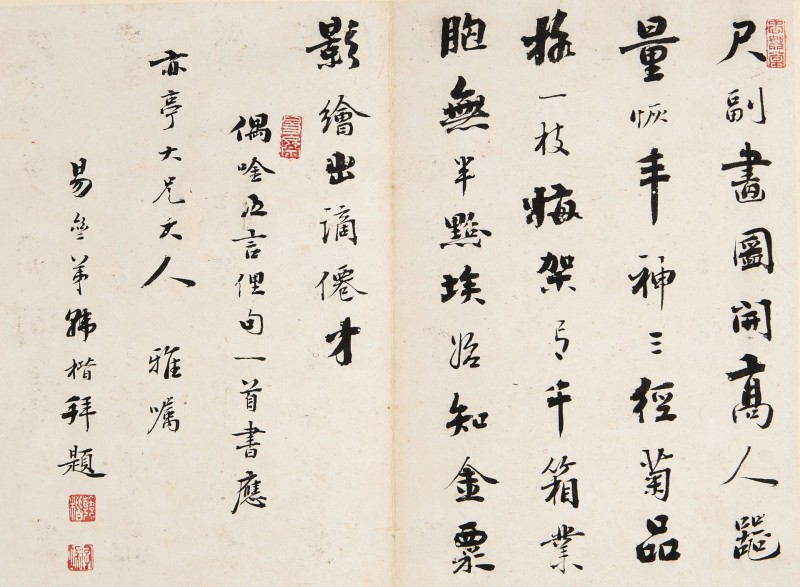 尺副畫圖開高人器
量恢丰神三徑菊品
格一枝梅架有千箱業
胸無半點埃始知金粟
影繪出謫僊才
偶唫五言俚句一首書應
亦亭大兄大人 雅囑
易弟韓楷拜題